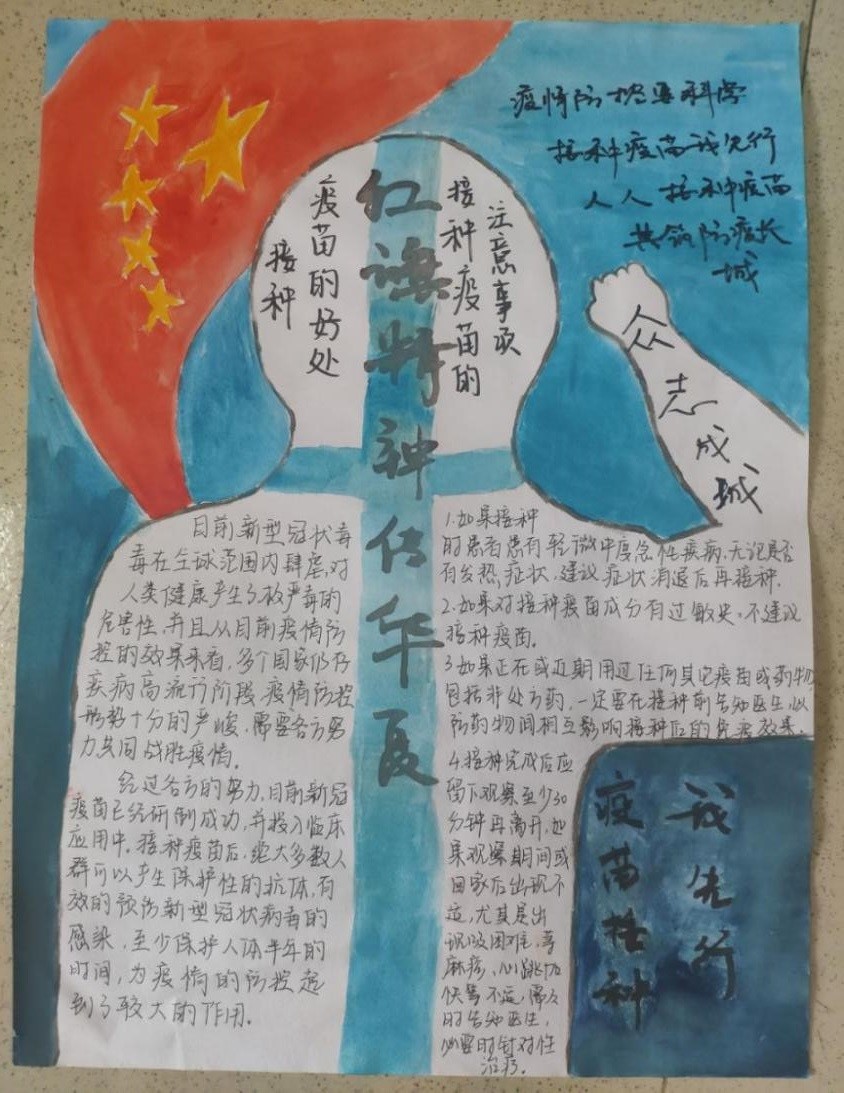 疫情防控要科学
接种疫苗我先行
人人接种疫苗
共筑防疫长
城
众
志
成
城
红旗精神传华夏
接种
疫苗的好处
接种疫苗的
注意事项
目前新型冠状毒
毒在全球范围内肆虐,对
人类健康产生了极严毒的
危害性,并且从目前疫情防
控的效果来看,多个国家仍存
疾病高流行阶段,疫情防控
形势十分的严峻,需要各方努
力共同战胜疫情。
经过各方的努力,目前新冠
疫苗已经研制成功,并投入临床
应用中。接种疫苗后,绝大多数人
群可以产生保护性的抗体,有
效的预防新型冠状病毒的
感染,至少保护人体半年的
时间,为疫情的防控起
到了较大的作用。
1.如果接种
时患者患有轻微中度急性疾病,无论是否
有发热症状,建议症状消退后再接种.
2.如果对接种疫苗成分有过敏史,不建议
接种疫苗。
3.如果正在或近期用过任何其它疫苗或药物
包括非处方药,一定要在接种前告知医生,以
防药物间相互影响接种后的免疫效果.
4.接种完成后应
留下观察至少30
分钟再离开,如
果观察期间或
回家后出现不
适,尤其是出
现吸困难,荨
麻疹,心跳加
快等不适,需及
时告知医生,
必要时针对性
治疗.
疫苗接种
我先行